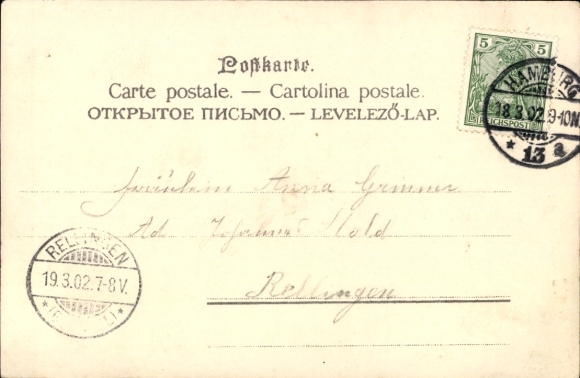 Postkarte.
Carte postale. — Cartolina postale.
ОТКРЫТОЕ ПИСЬМО. — LEVELEZŐ-LAP.
5 5
REICHSPOST
HAMBURG
18.3.02.9-10N.
* 13 a
Fräulein Anna Grimmer
Ad
Rellingen
RELLINGEN
19.3.02.7-8V.